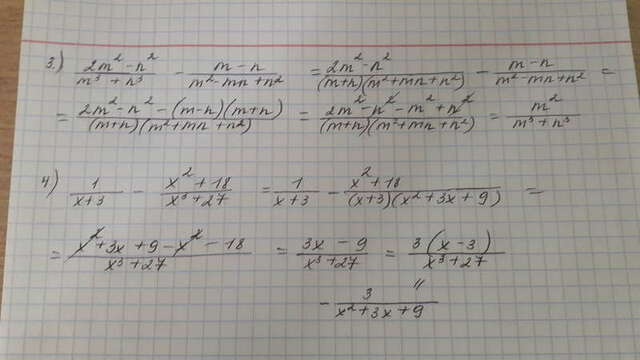 3) (2m² - n²)/(m³ + n³) - (m - n)/(m² - mn + n²) = (2m² - n²)/((m+n)(m² + mn + n²)) - (m - n)/(m² - mn + n²) =
= (2m² - n² - (m-n)(m+n))/((m+n)(m² + mn + n²)) = (2m² - n² - m² + n²)/((m+n)(m² + mn + n²)) = m²/(m³ + n³)
4) 1/(x+3) - (x² + 18)/(x³ + 27) = 1/(x+3) - (x² + 18)/((x+3)(x² + 3x + 9)) =
= (x² + 3x + 9 - x² - 18)/(x³ + 27) = (3x - 9)/(x³ + 27) = 3(x - 3)/(x³ + 27)
=
- 3/(x² + 3x + 9)